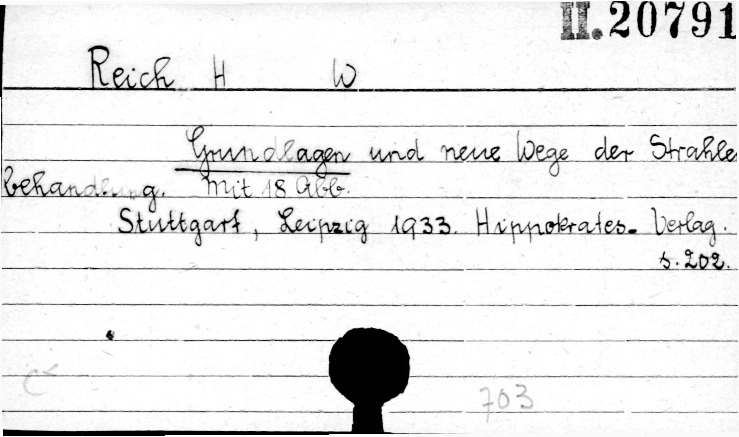 II.20791
Reich H W
Grundlagen und neue Wege der Strahle
behandlung. Mit 18 Abb.
Stuttgart, Leipzig 1933. Hippokrates- Verlag.
s. 202.
703